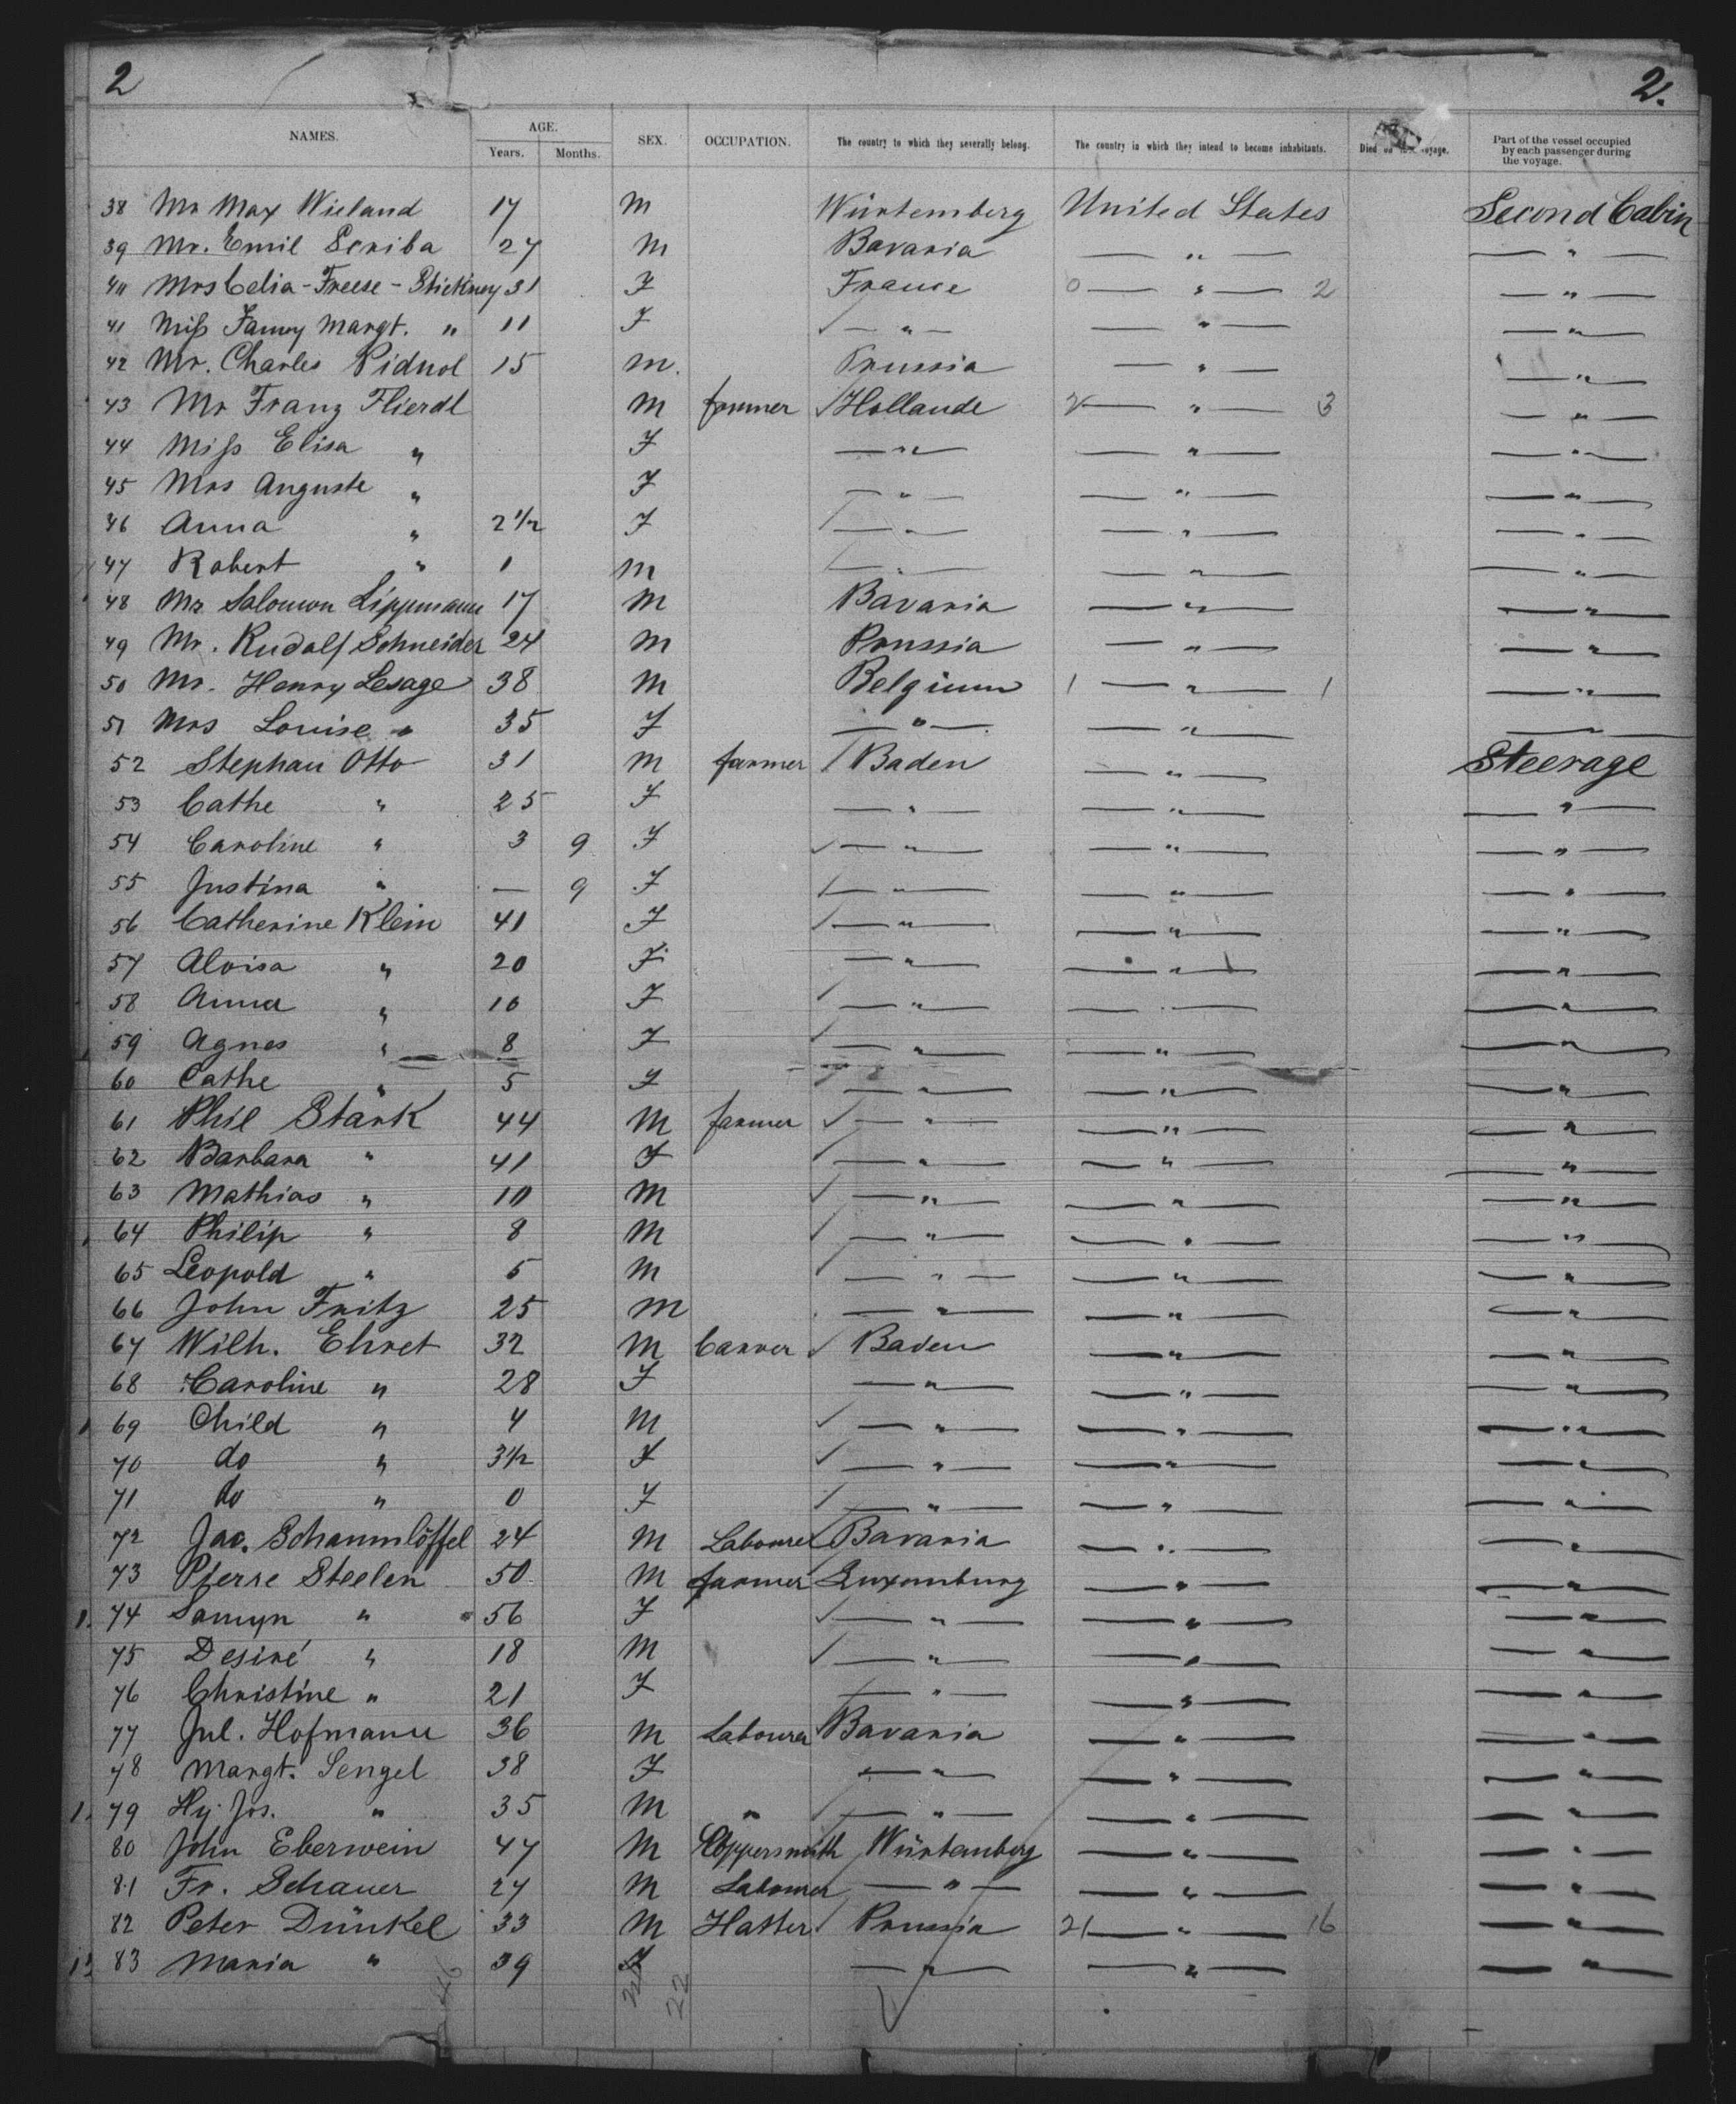 2 2.
NAMES. AGE. Years. Months. SEX. OCCUPATION. The country to which they severally belong. The country in which they intend to become inhabitants. Died on the voyage. Part of the vessel occupied by each passenger during the voyage.
38 Mr Max Wieland 17 M Würtemberg United States Second Cabin
39 Mr. Emil Scriba 27 M Bavaria — " — — " —
40 Mrs Celia-Freese-Stickney 31 F France 0 — " — 2 — " —
41 Miss Fanny Margt. " 11 F — " — — " — — " —
42 Mr. Charles Pidnol 15 M. Prussia — " — — " —
43 Mr Franz Flierdl M farmer Hollande 2 — " — 3 — " —
44 Miss Elisa " F — " — — " — — " —
45 Mrs Auguste " F — " — — " — — " —
46 Anna " 2 1/2 F — " — — " — — " —
47 Robert " 1 M — " — — " — — " —
48 Mr Salomon Lippmann 17 M Bavaria — " — — " —
49 Mr. Rudolf Schneider 24 M Prussia — " — — " —
50 Mr. Henry Lesage 38 M Belgium 1 — " — 1 — " —
51 Mrs Louise " 35 F — " — — " — — " —
52 Stephan Otto 31 M farmer Baden — " — Steerage
53 Cathe " 25 F — " — — " — — " —
54 Caroline " 3 9 F — " — — " — — " —
55 Justina " — 9 F — " — — " — — " —
56 Catherine Klein 41 F — " — — " — — " —
57 Aloisa " 20 F — " — — " — — " —
58 Anna " 10 F — " — — " — — " —
59 Agnes " 8 F — " — — " — — " —
60 Cathe " 5 F — " — — " — — " —
61 Phil Stark 44 M farmer — " — — " — — " —
62 Barbara " 41 F — " — — " — — " —
63 Mathias " 10 M — " — — " — — " —
64 Philip " 8 M — " — — " — — " —
65 Leopold " 5 M — " — — " — — " —
66 John Fritz 25 M — " — — " — — " —
67 Wilh. Ehret 32 M Carver Baden — " — — " —
68 Caroline " 28 F — " — — " — — " —
69 Child " 4 M — " — — " — — " —
70 do " 3 1/2 F — " — — " — — " —
71 do " 0 F — " — — " — — " —
72 Jac. Schaumlöffel 24 M Labourer Bavaria — " — — " —
73 Pierre Steelen 50 M farmer Luxemburg — " — — " —
74 Samyn " 56 F — " — — " — — " —
75 Desiré " 18 M — " — — " — — " —
76 Christine " 21 F — " — — " — — " —
77 Jul. Hofmann 36 M Labourer Bavaria — " — — " —
78 Margt. Sengel 38 F — " — — " — — " —
79 Hy. Jos. " 35 M " — " — — " — — " —
80 John Eberwein 47 M Coppersmith Würtemberg — " — — " —
81 Fr. Schauer 27 M Labourer — " — — " — — " —
82 Peter Dünkel 33 M Hatter Prussia 21 — " — 16 — " —
83 Maria " 39 F — " — — " — — " —
46 22